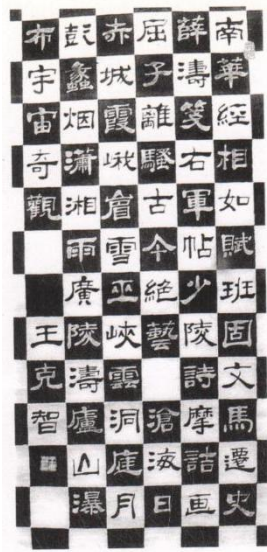 南華經相如賦班固文馬遷史
薛濤箋右軍帖少陵詩摩詰画
屈子離騷古今絕藝滄海日
赤城霞峨眉雪巫峽雲洞庭月
彭蠡烟瀟湘雨廣陵濤廬山瀑
布宇宙奇觀
王克智